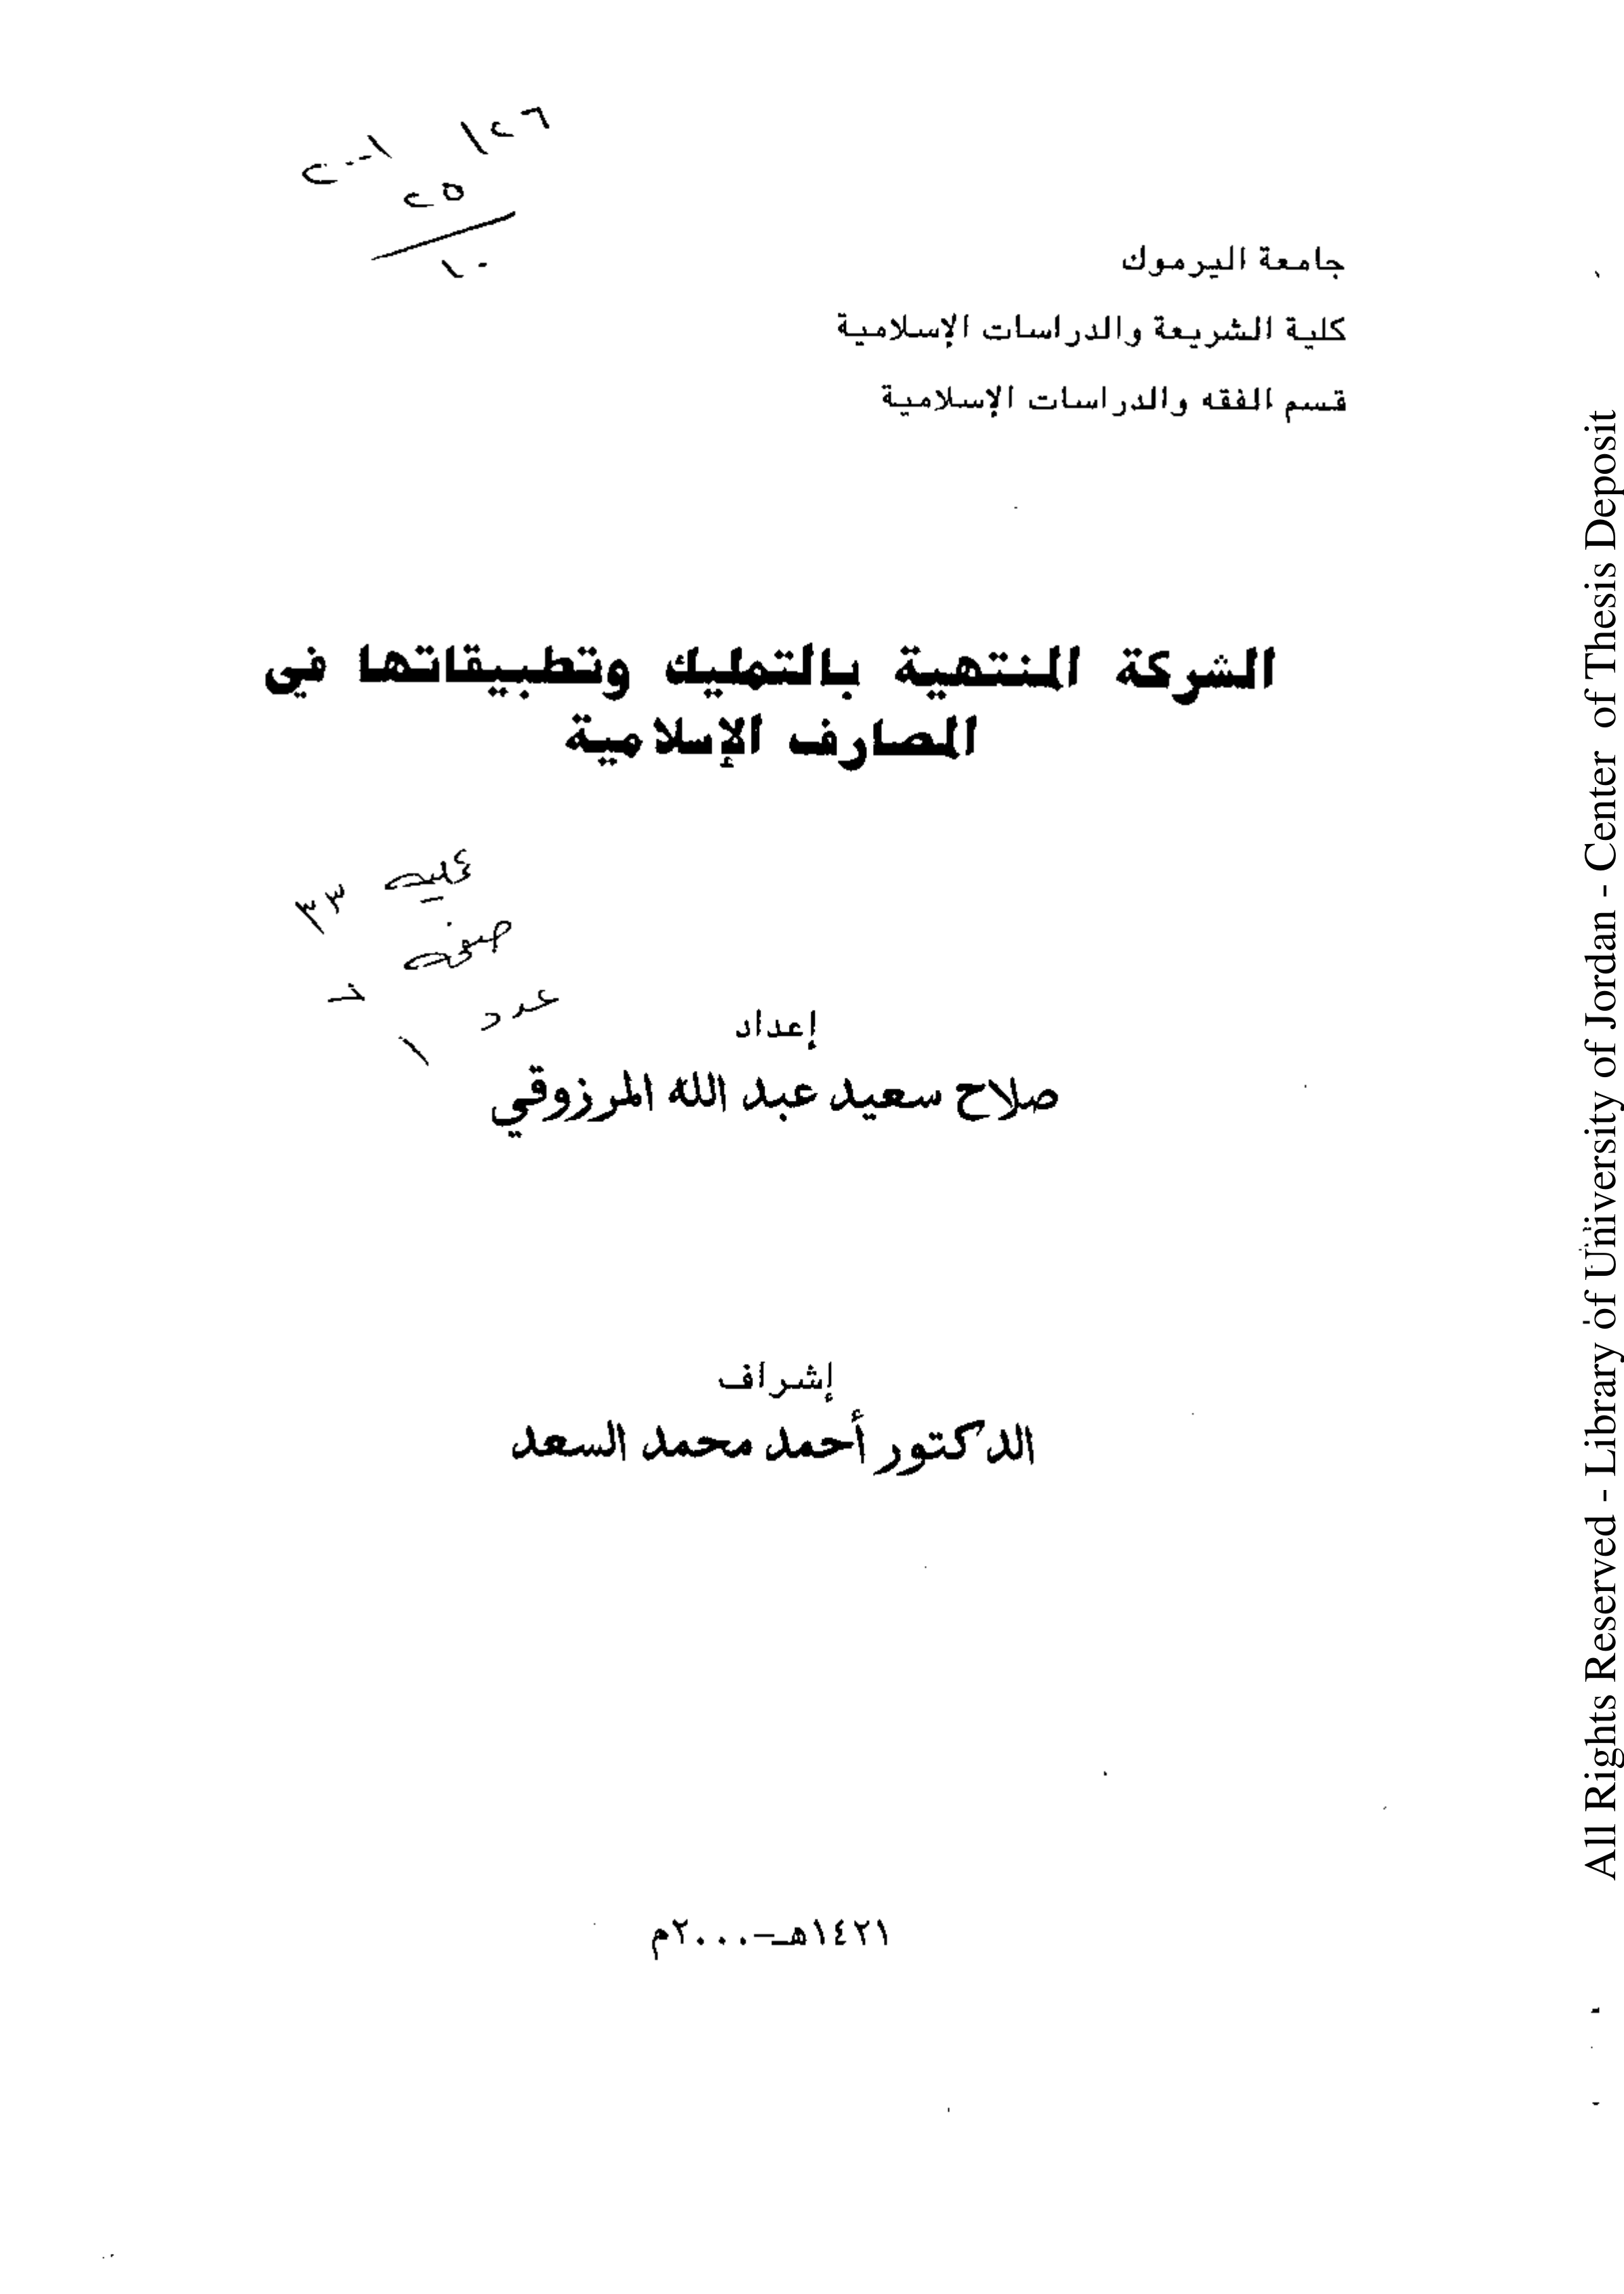 ١٢٦
٢٠٠١
٢٥
١٠
جامعة اليرموك
كلية الشريعة والدراسات الإسلامية
قسم الفقه والدراسات الإسلامية
الشركة المنتهية بالتمليك وتطبيقاتها في
المصارف الإسلامية
صفحة
عدد ١
إعداد
صلاح سعيد عبد الله المرزوقي
إشراف
الدكتور أحمد محمد السعد
١٤٢١هـ-٢٠٠٠م
All Rights Reserved - Library of University of Jordan - Center of Thesis Deposit